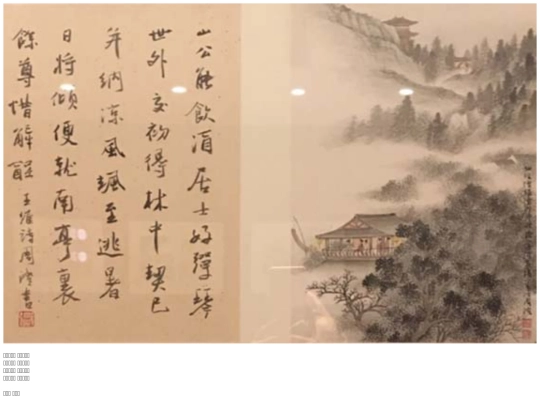 山公能飲酒居士好彈琴
世外交初得林中契已
并納涼風颯至逃暑
日將傾便就南亭裏
餘尊惜解酲王維詩周澄書